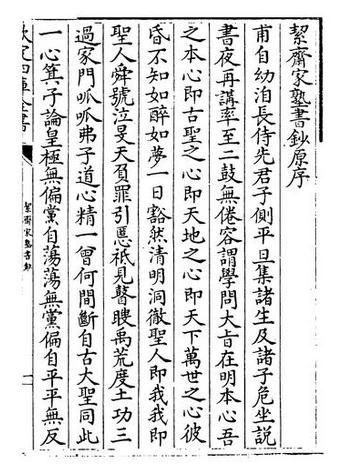 絜齋家塾書鈔原序
甫自幼洎長侍先君子側平旦集諸生及諸子危坐說
書夜再講率至二鼓無倦容謂學問大旨在明本心吾
之本心即古聖之心即天地之心即天下萬世之心彼
昏不知如醉如夢一日豁然清明洞徹聖人即我我即
聖人舜號泣旻天負罪引慝祗見瞽瞍禹荒度土功三
過家門呱呱弗子道心精一曾何間斷自古大聖同此
一心箕子論皇極無偏黨自蕩蕩無黨偏自平平無反
欽定四庫全書
絜齋家塾書鈔
一